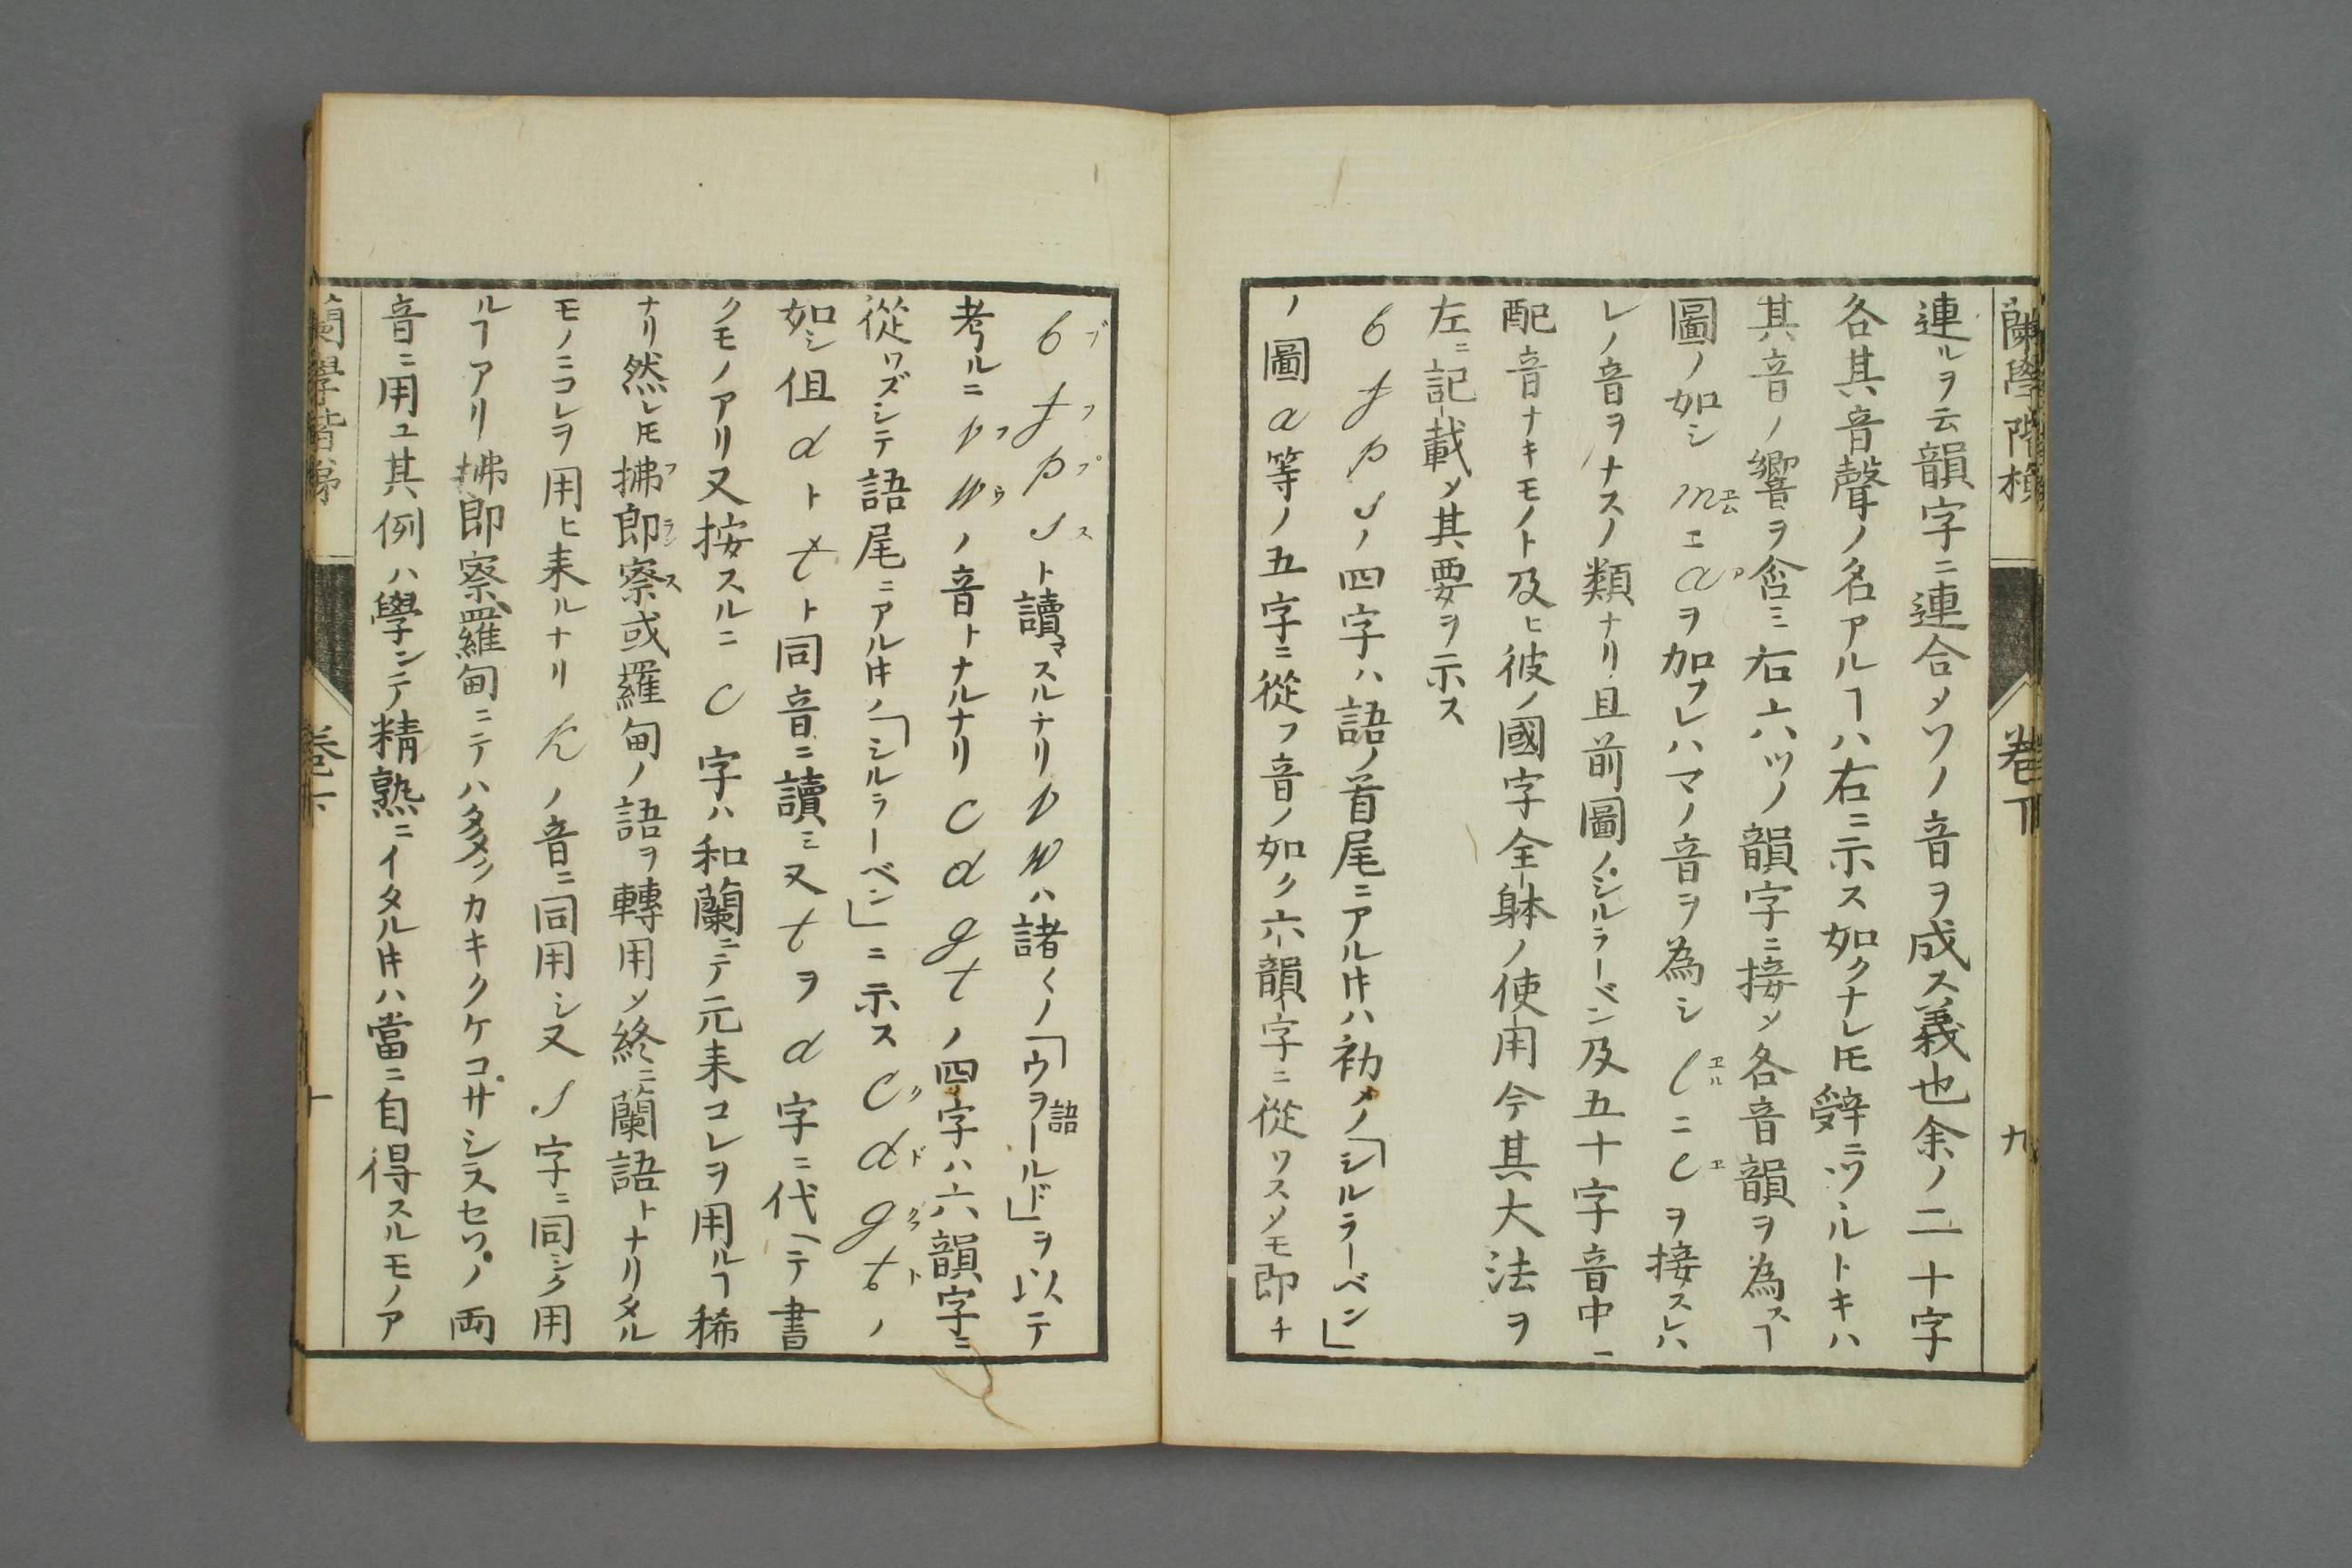 蘭學階梯 卷下 九
連ルヲ云韻字ニ連合メソノ音ヲ成ス義也余ノ二十字
各其音聲ノ名アルヿハ右ニ示ス如クナレ𪜈辭ニツヾルトキハ
其音ノ響ヲ含ミ右六ツノ韻字ニ接メ各音韻ヲ為スヿ
圖ノ如シmエムニaアヲ加フレハマノ音ヲ為シlエルニeエヲ接スレハ
レノ音ヲナスノ類ナリ且前圖ノシルラーベン及五十字音中ニ
配音ナキモノト及ヒ彼ノ國字全躰ノ使用今其大法ヲ
左ニ記載メ其要ヲ示ス
b f p sノ四字ハ語ノ首尾ニアル𪜈ハ初メノ「シルラーベン」
ノ圖a等ノ五字ニ從フ音ノ如ク六韻字ニ從ワスメモ即チ
bブ fフ pプ sスト讀マスルナリv wハ諸〱ノ「ウヲールド」語ヲ以テ
考ルニvフ wウノ音トナルナリc d g tノ四字ハ六韻字ニ
從ワズシテ語尾ニアル𪜈ノ「シルラーベン」ニ示スcク dド gグ tトノ
如シ但dトtト同音ニ讀ミ又tヲd字ニ代ヘテ書
クモノアリ又按スルニc字ハ和蘭ニテ元来コレヲ用ルヿ稀
ナリ然レ𪜈拂郎察フランス或羅甸ノ語ヲ轉用メ終ニ蘭語トナリタル
モノニコレヲ用ヒ来ルナリkノ音ニ同用シ又s字ニ同シク用
ルヿアリ拂郎察羅甸ニテハ多クカキクケコサシスセソノ両
音ニ用ユ其例ハ學ンテ精熟ニイタル𪜈ハ當ニ自得スルモノア
蘭學階梯 卷下 十